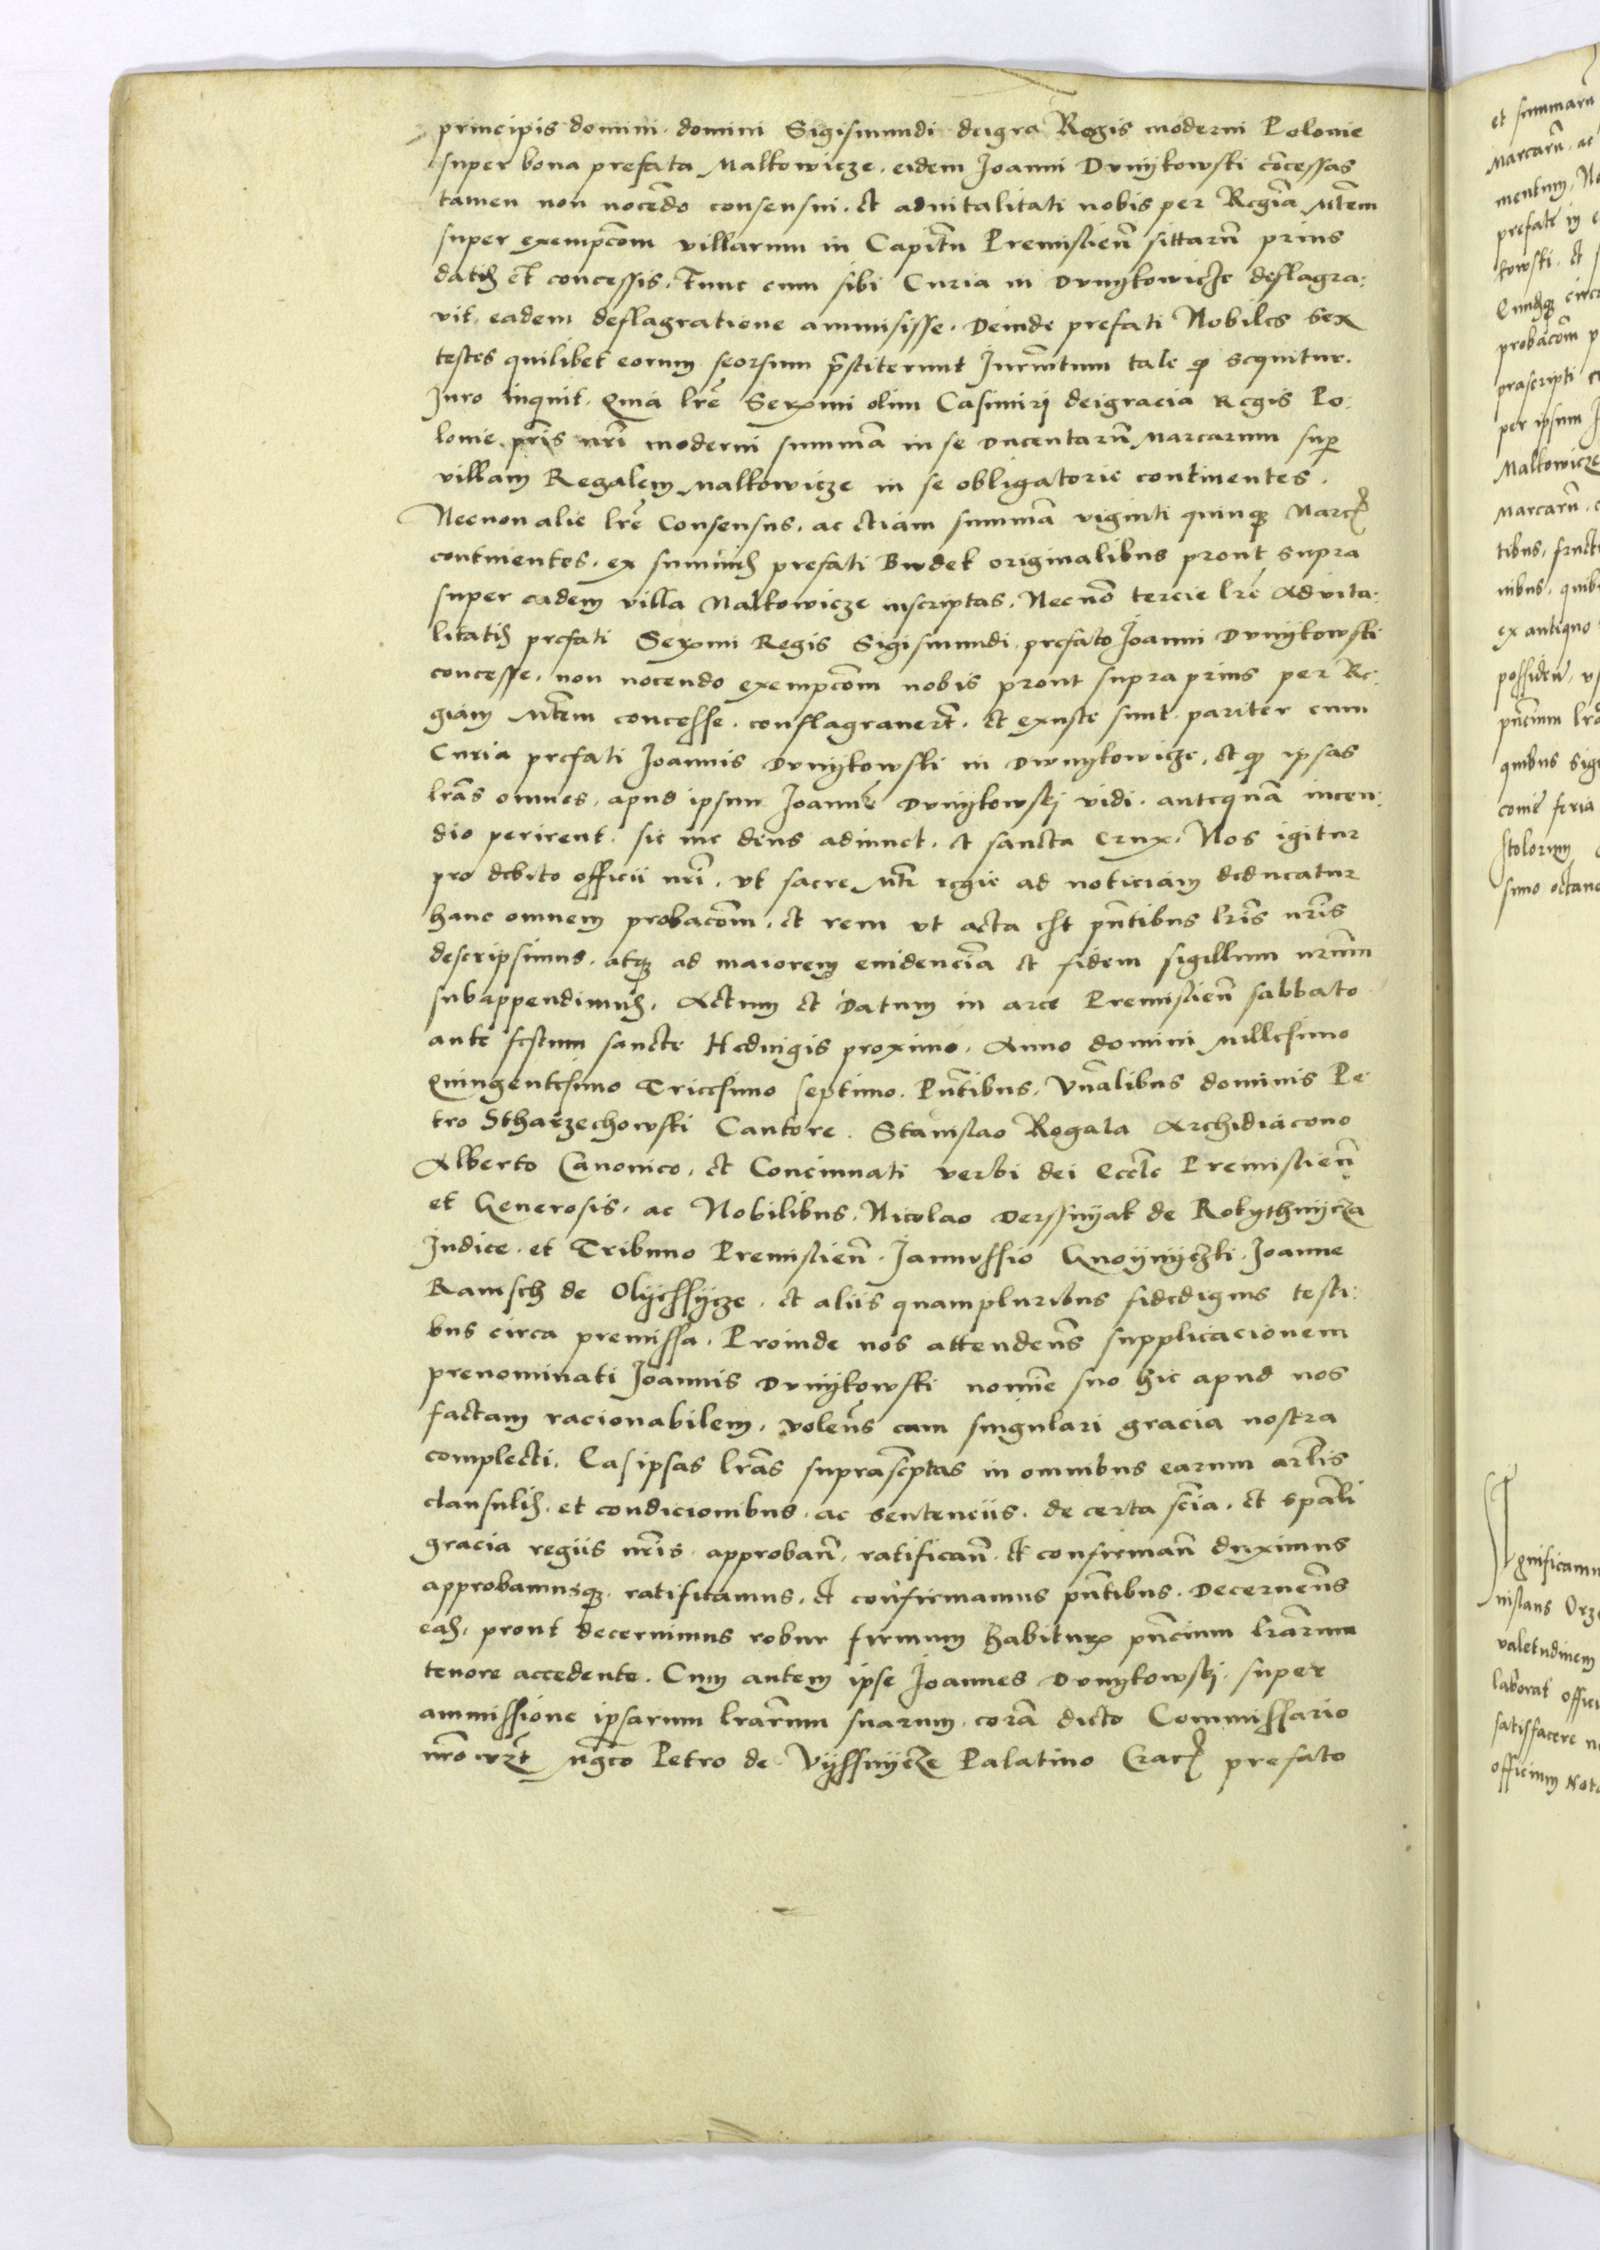 principis domini domini Sigismundi deigra Regis moderni Polonie
super bona prefata Malkowicze, eidem Joanni Drnijkowski cõcessas
tamen non nocẽdo consensui, et advitalitati nobis per Regiã Mtem
super exempcõm villarum in Capitñ Premislieñ sittarũ prius
datis et concessis, Tunc cum sibi Curia in Drnykowicze deflagra:
vit, eadem deflagratione ammisisse. Deinde prefati Nobiles sex
testes quilibet eorum seorsum prestiterunt Jurmẽtum tale qd sequitur.
Juro inquit, Quia lrẽ Sermi olim Casimiri deigracia Regis Po:
lonie, pris nri moderni summã in se ducentarũ Marcarum sup
villam Regalem Malkowicze in se obligatorie continentes,
Necnon alie lrẽ Consensus, ac etiam summã viginti quinq Marc
continentes, ex summis prefati Budek originalibus prout supra
super eadem villa Malkowicze inscriptas, Necnõ tercie lrẽ Advita:
litatis prefati Sermi Regis Sigismundi, prefato Joanni Drnijkowski
concesse, non nocendo exempcõm nobis prout supra prius per Re:
giam Mtem concesse, conflagraverũt, et exuste sunt pariter cum
Curia prefati Joannis Drnijkowski in Drwnykowicze, et qd ipsas
lrãs omnes, apud ipsum Joannẽ Drnijkowskj vidi, antequã incen:
dio perirent, sic me deus adiuvet, et sancta Crux, Nos igitur
pro debito officii nri, vt sacre Mti regie ad noticiam deducatur
hanc omnem probacõm, et rem vt acta est pñtibus lris nris
descripsimus, atq ad maiorem evidenciã et fidem sigillum nrũm
subappendimus, Actum et Datum in arce Premislieñ sabbato
ante festum sancte Hedvigis proximo, Anno domini Millesimo
Quingentesimo Tricesimo septimo. Pñtibus, Vñalibus dominis Pe
tro Stharzechowski Cantore, Stanislao Rogala Archidiacono
Alberto Canonico, et Concionati verbi dei Eccle Premislieñ
et Generosis, ac Nobilibus, Nicolao Derssnijak de Rokythnijcza
Judice et Tribuno Premislieñ, Janussio Gnoijnijczki, Joanne
Ramsch de Olijchssijcze, et aliis quampluribus fidedignis testi:
bus circa premissa, Proinde nos attendens supplicacionem
prenominati Joannis Drnijkowski nomine suo hic apud nos
factam racionabilem, volens eam singulari gracia nostra
complecti, Eas ipsas lrãs suprascptas in omnibus earum artlis
clausulis, et condicionibus, ac sentenciis, de certa scia, et spãli
gracia regiis nris approbañ, ratificañ, et confirmañ duximus
approbamusq, ratificamus, et confirmamus pñtibus, Decernens
eas, prout decernimus robur firmum habituras pñcium lrarum
tenore accedente. Cum autem ipse Joannes Drnykowskj super
ammissione ipsarum lrarum suarum, corã dicto Commissario
nro Mco Petro de Vijssnijcze Palatino Crac prefato